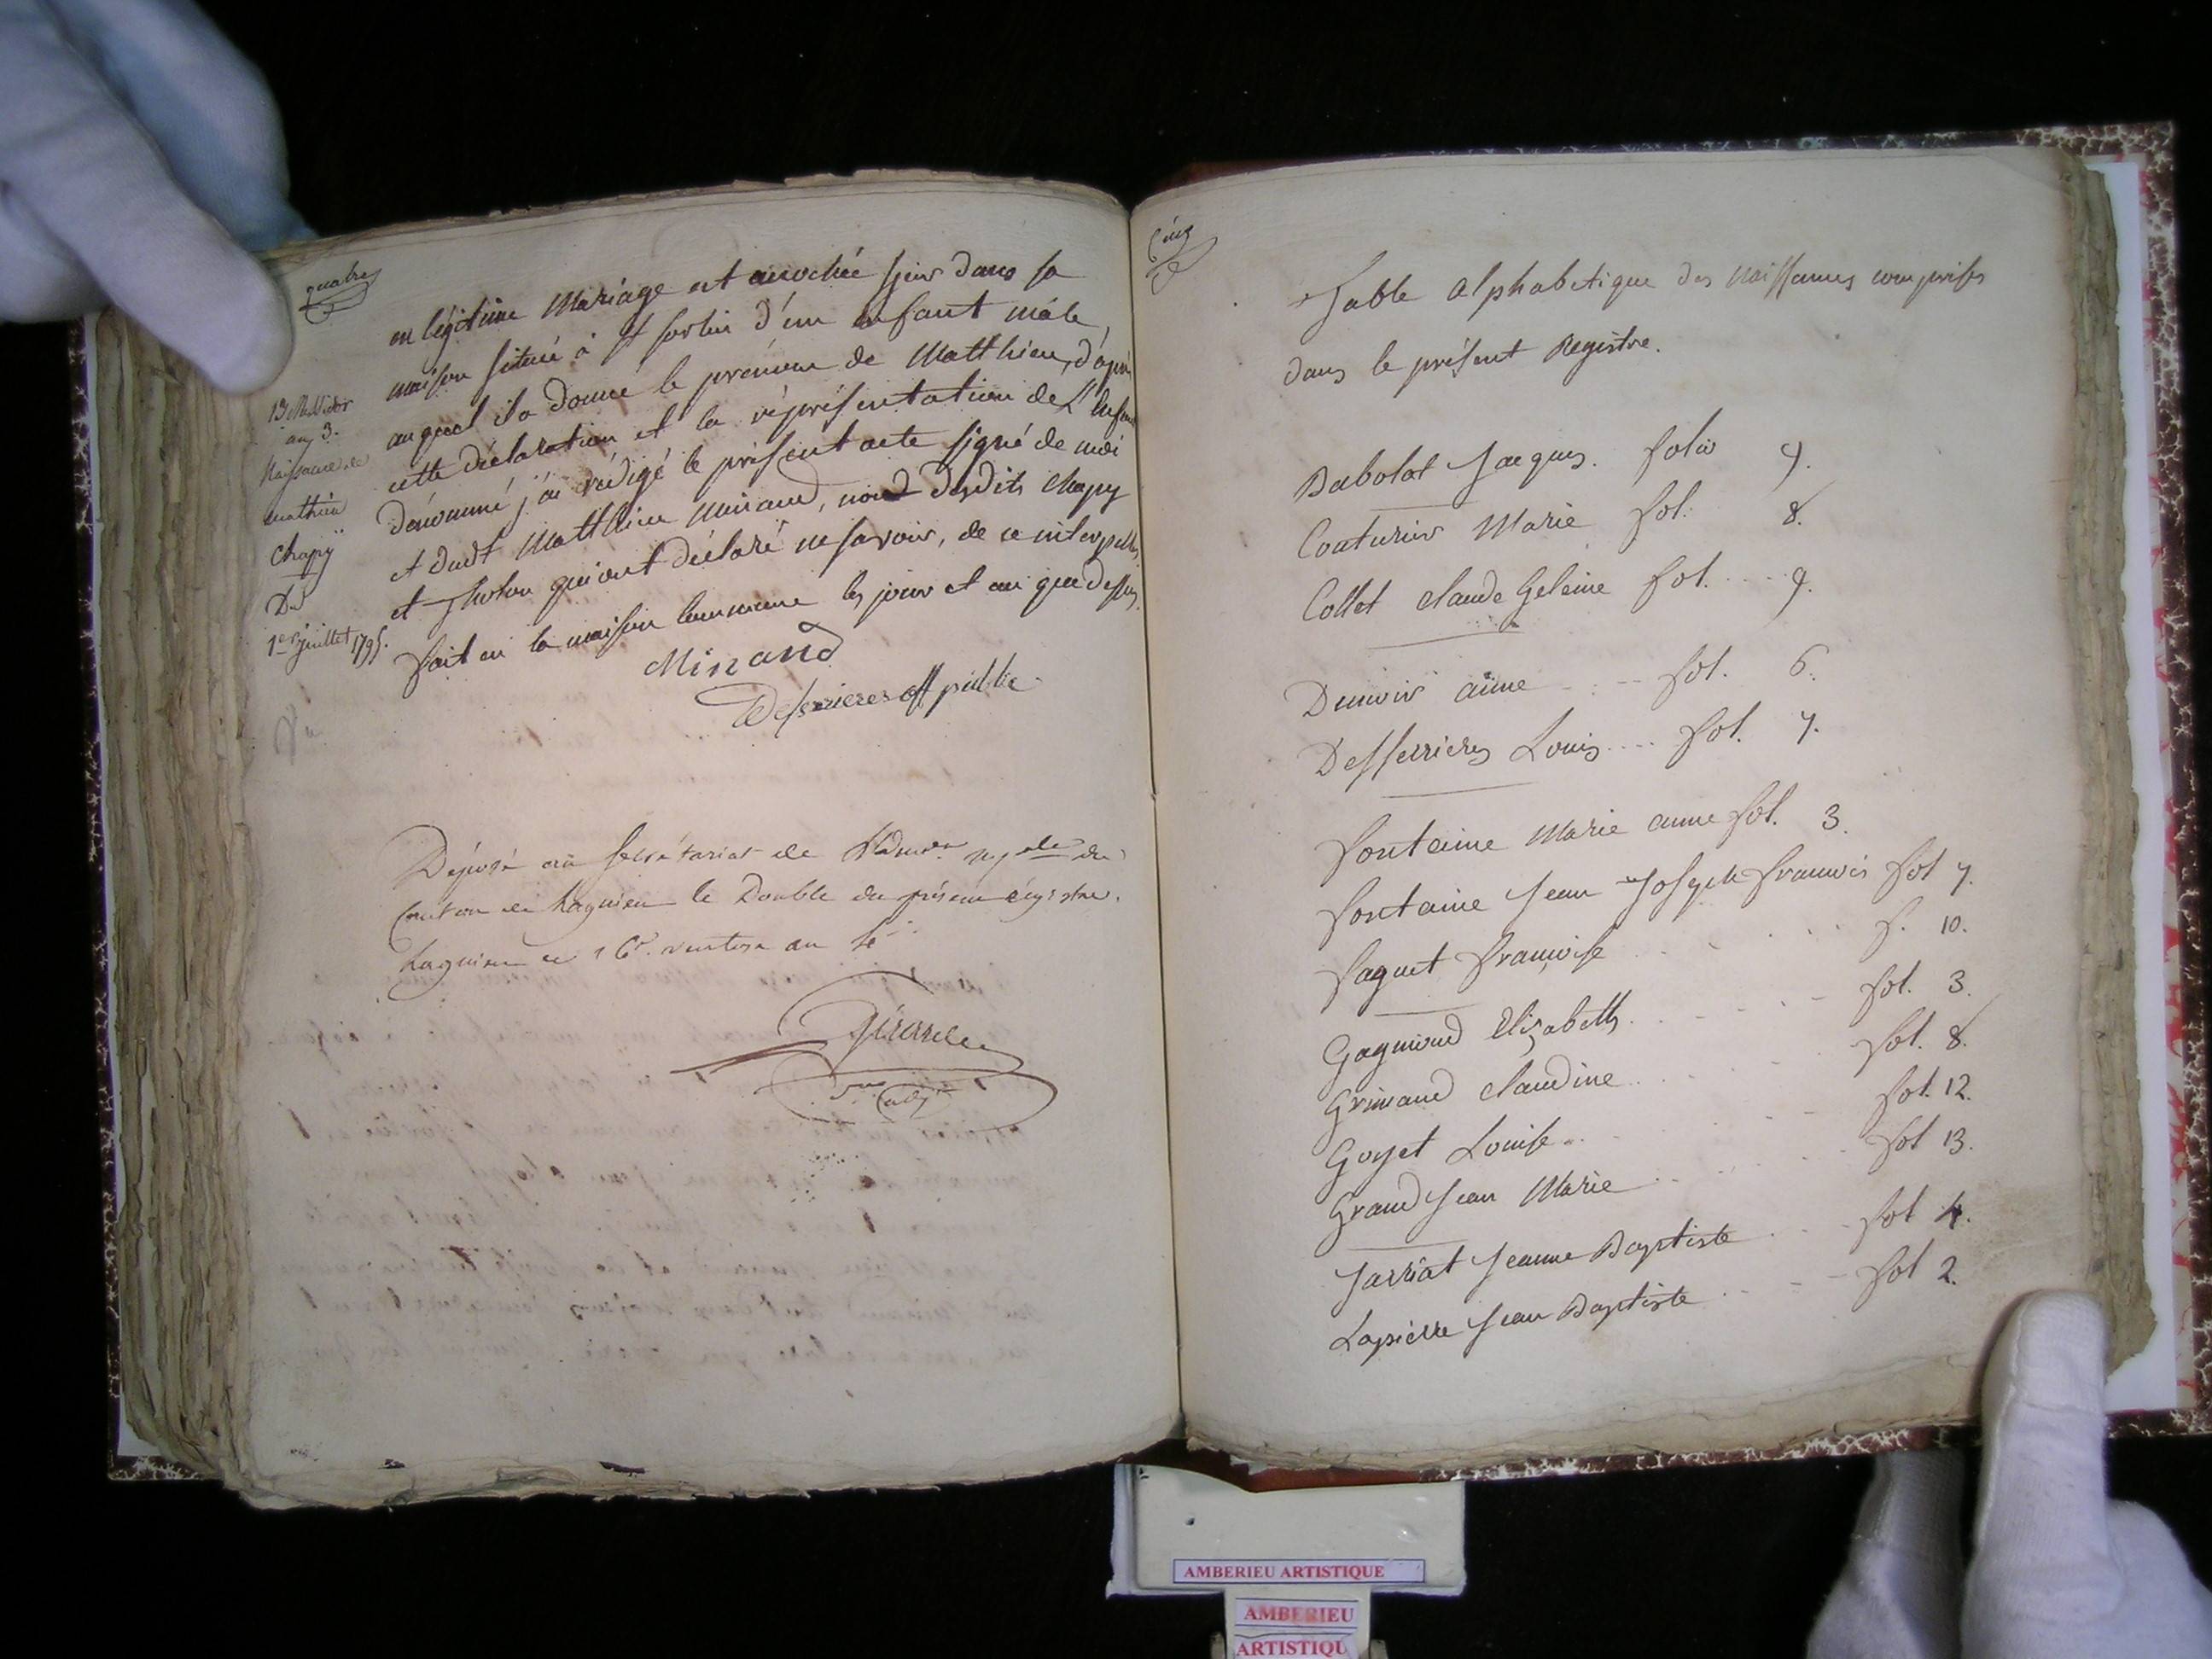 quatre
en légitime Mariage est accochée hier dans sa
maison située à St sorlin d'un enfant mâle,
auquel il a donné le prénom de Matthieu, d'après
cette déclaration et la représentation de L'enfant
dénommé j'ai rédigé le présent acte signé de moi
et dudt Matthieu Minand, non desdits Chapy
et qui ont déclaré ne savoir, de ce interpellés
fait en la maison Commune les jour et an que dessus.
Minand
Desserrieres off public
13 Messidor
an 3.
Naissance de
mathieu
Chapÿ
Du
1er juillet 1795.
Déposé au secrétariat de l'admon mple du
Canton de Lagnieu le Double du présent régistre.
Lagnieu ce 16 ventose an 4e
Girard
cinq
Table alphabetique des Naissances comprises
dans le présent Registre.
Babolat Jacques. folio 9.
Couturier Marie fol. 8.
Collet Claude Gelaine fol. .... 9.
Dunoir aimé fol. 6.
Desserrieres Louis .... fol. 7.
fontaine Marie anne fol. 3.
fontaine Jean Joseph françois fol 7.
faguet françoise f. 10.
Gagnioud Elizabeth fol. 3.
Grimaud Claudine fol. 8.
Goyet Louise fol. 12.
GrandJean Marie fol 13.
Jarriat Jeanne Baptiste fol 4.
Lapierre Jean Baptiste fol 2.
AMBERIEU ARTISTIQUE
AMBERIEU
ARTISTIQU